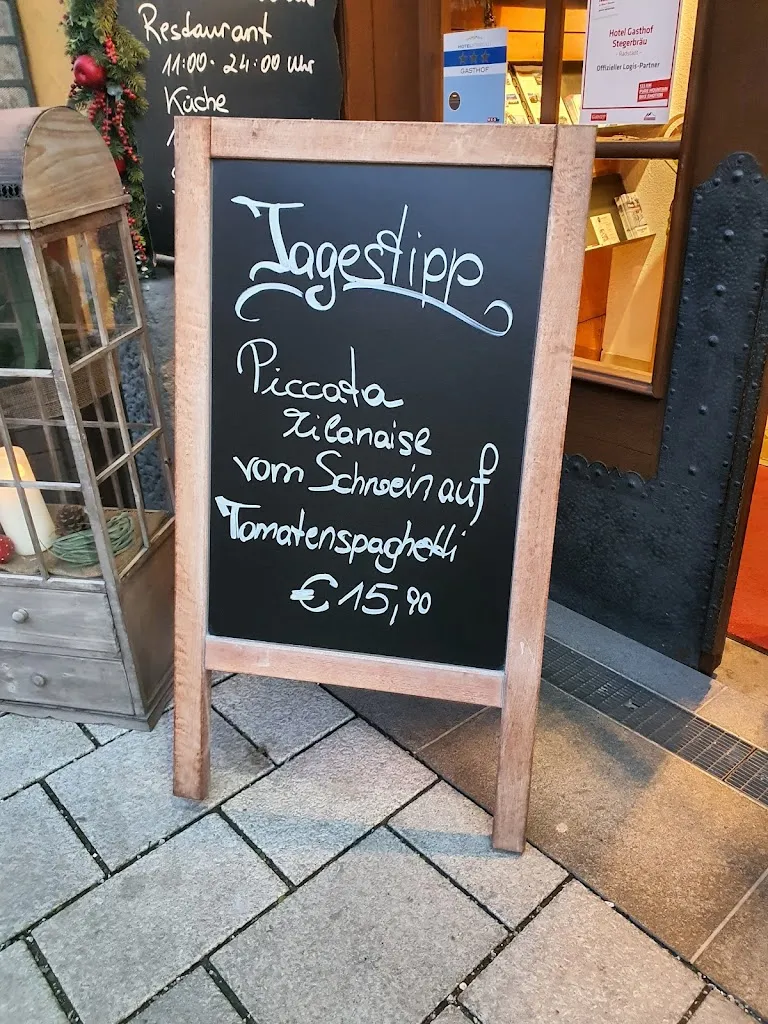 Restaurant
11:00 - 24:00 Uhr
Küche
GASTHOF
Hotel Gasthof
Stegerbräu
Offizieller Logis-Partner
Tagestipp
Piccata
Milanaise
vom Schwein auf
Tomatenspaghetti
€ 15,90